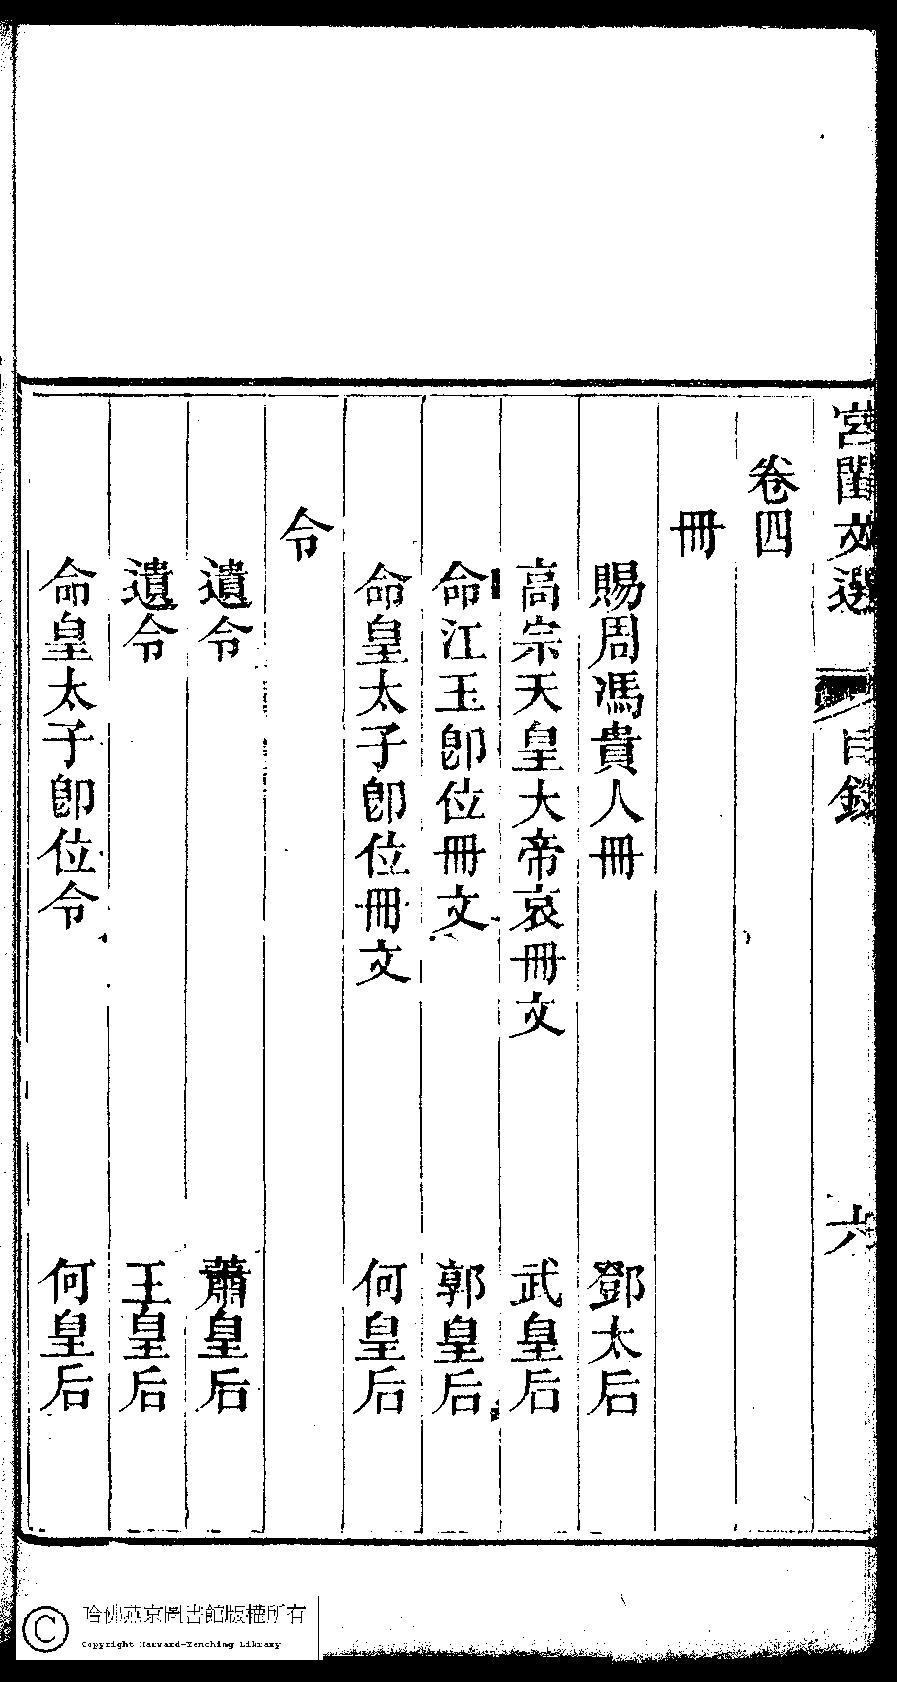 宮閨文選
目錄
六
卷四
冊
賜周馮貴人冊 鄧太后
高宗天皇大帝哀冊文 武皇后
命江王卽位冊文 郭皇后
命皇太子卽位冊文 何皇后
令
遺令 蕭皇后
遺令 王皇后
命皇太子卽位令 何皇后
哈佛燕京圖書館版權所有
Copyright Harvard-Yenching Library